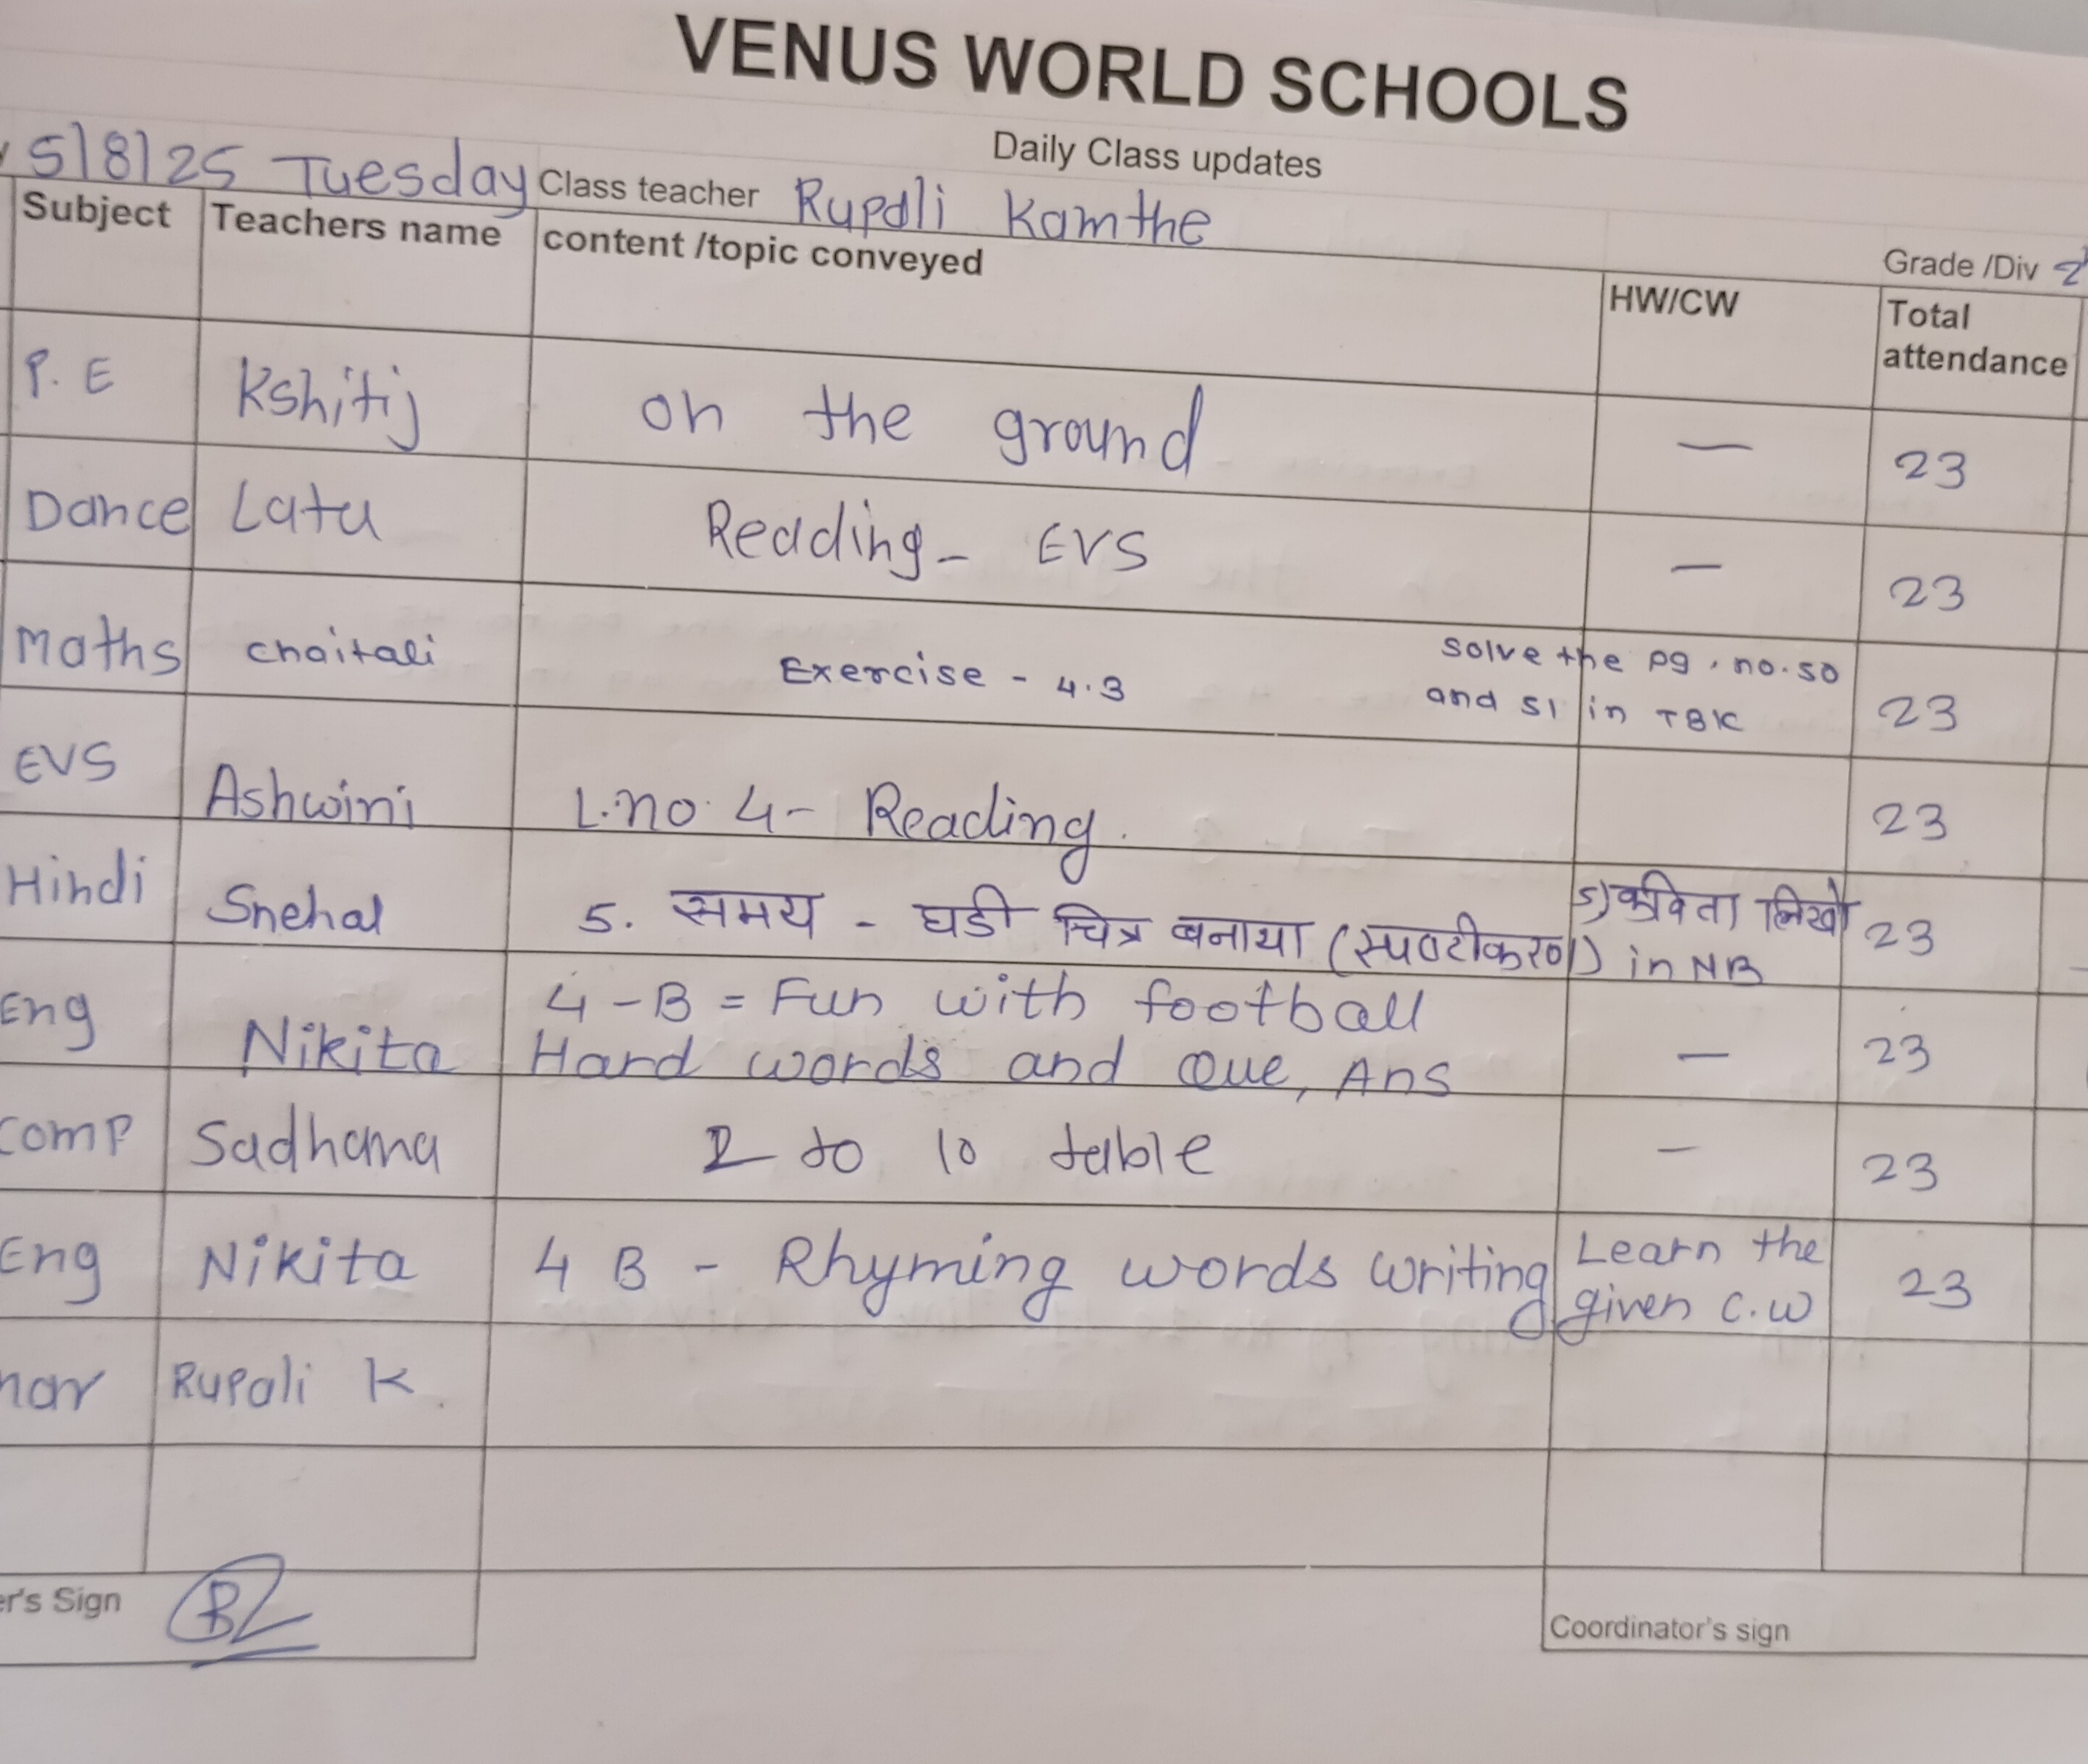 VENUS WORLD SCHOOLS
Daily Class updates
5/8/25 Tuesday Class teacher Rupali Kamthe
Grade /Div 2
Subject Teachers name content /topic conveyed HW/CW Total attendance
P.E Kshitij on the ground — 23
Dance Lata Reading - EVS — 23
Maths chaitali Exercise - 4.3 solve the pg. no. 50 23
and 51 in TBK
EVS Ashwini L.no. 4 - Reading. 23
Hindi Snehal 5. समय - घडी चित्र बनाया (स्पष्टीकरण) 5) कविता लिखो 23
in NB
Eng Nikita 4 - B = Fun with football — 23
Hard words and Que, Ans
Comp Sadhana 2 to 10 table — 23
Eng Nikita 4 B - Rhyming words writing Learn the 23
given C.W
Rupali K.
er's Sign
Coordinator's sign